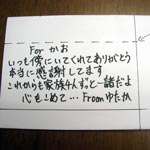 For かお
いつも傍にいてくれてありがとう
本当に感謝してます
これからも家族4人ずっと一諸だよ
心をこめて…Fromゆたか